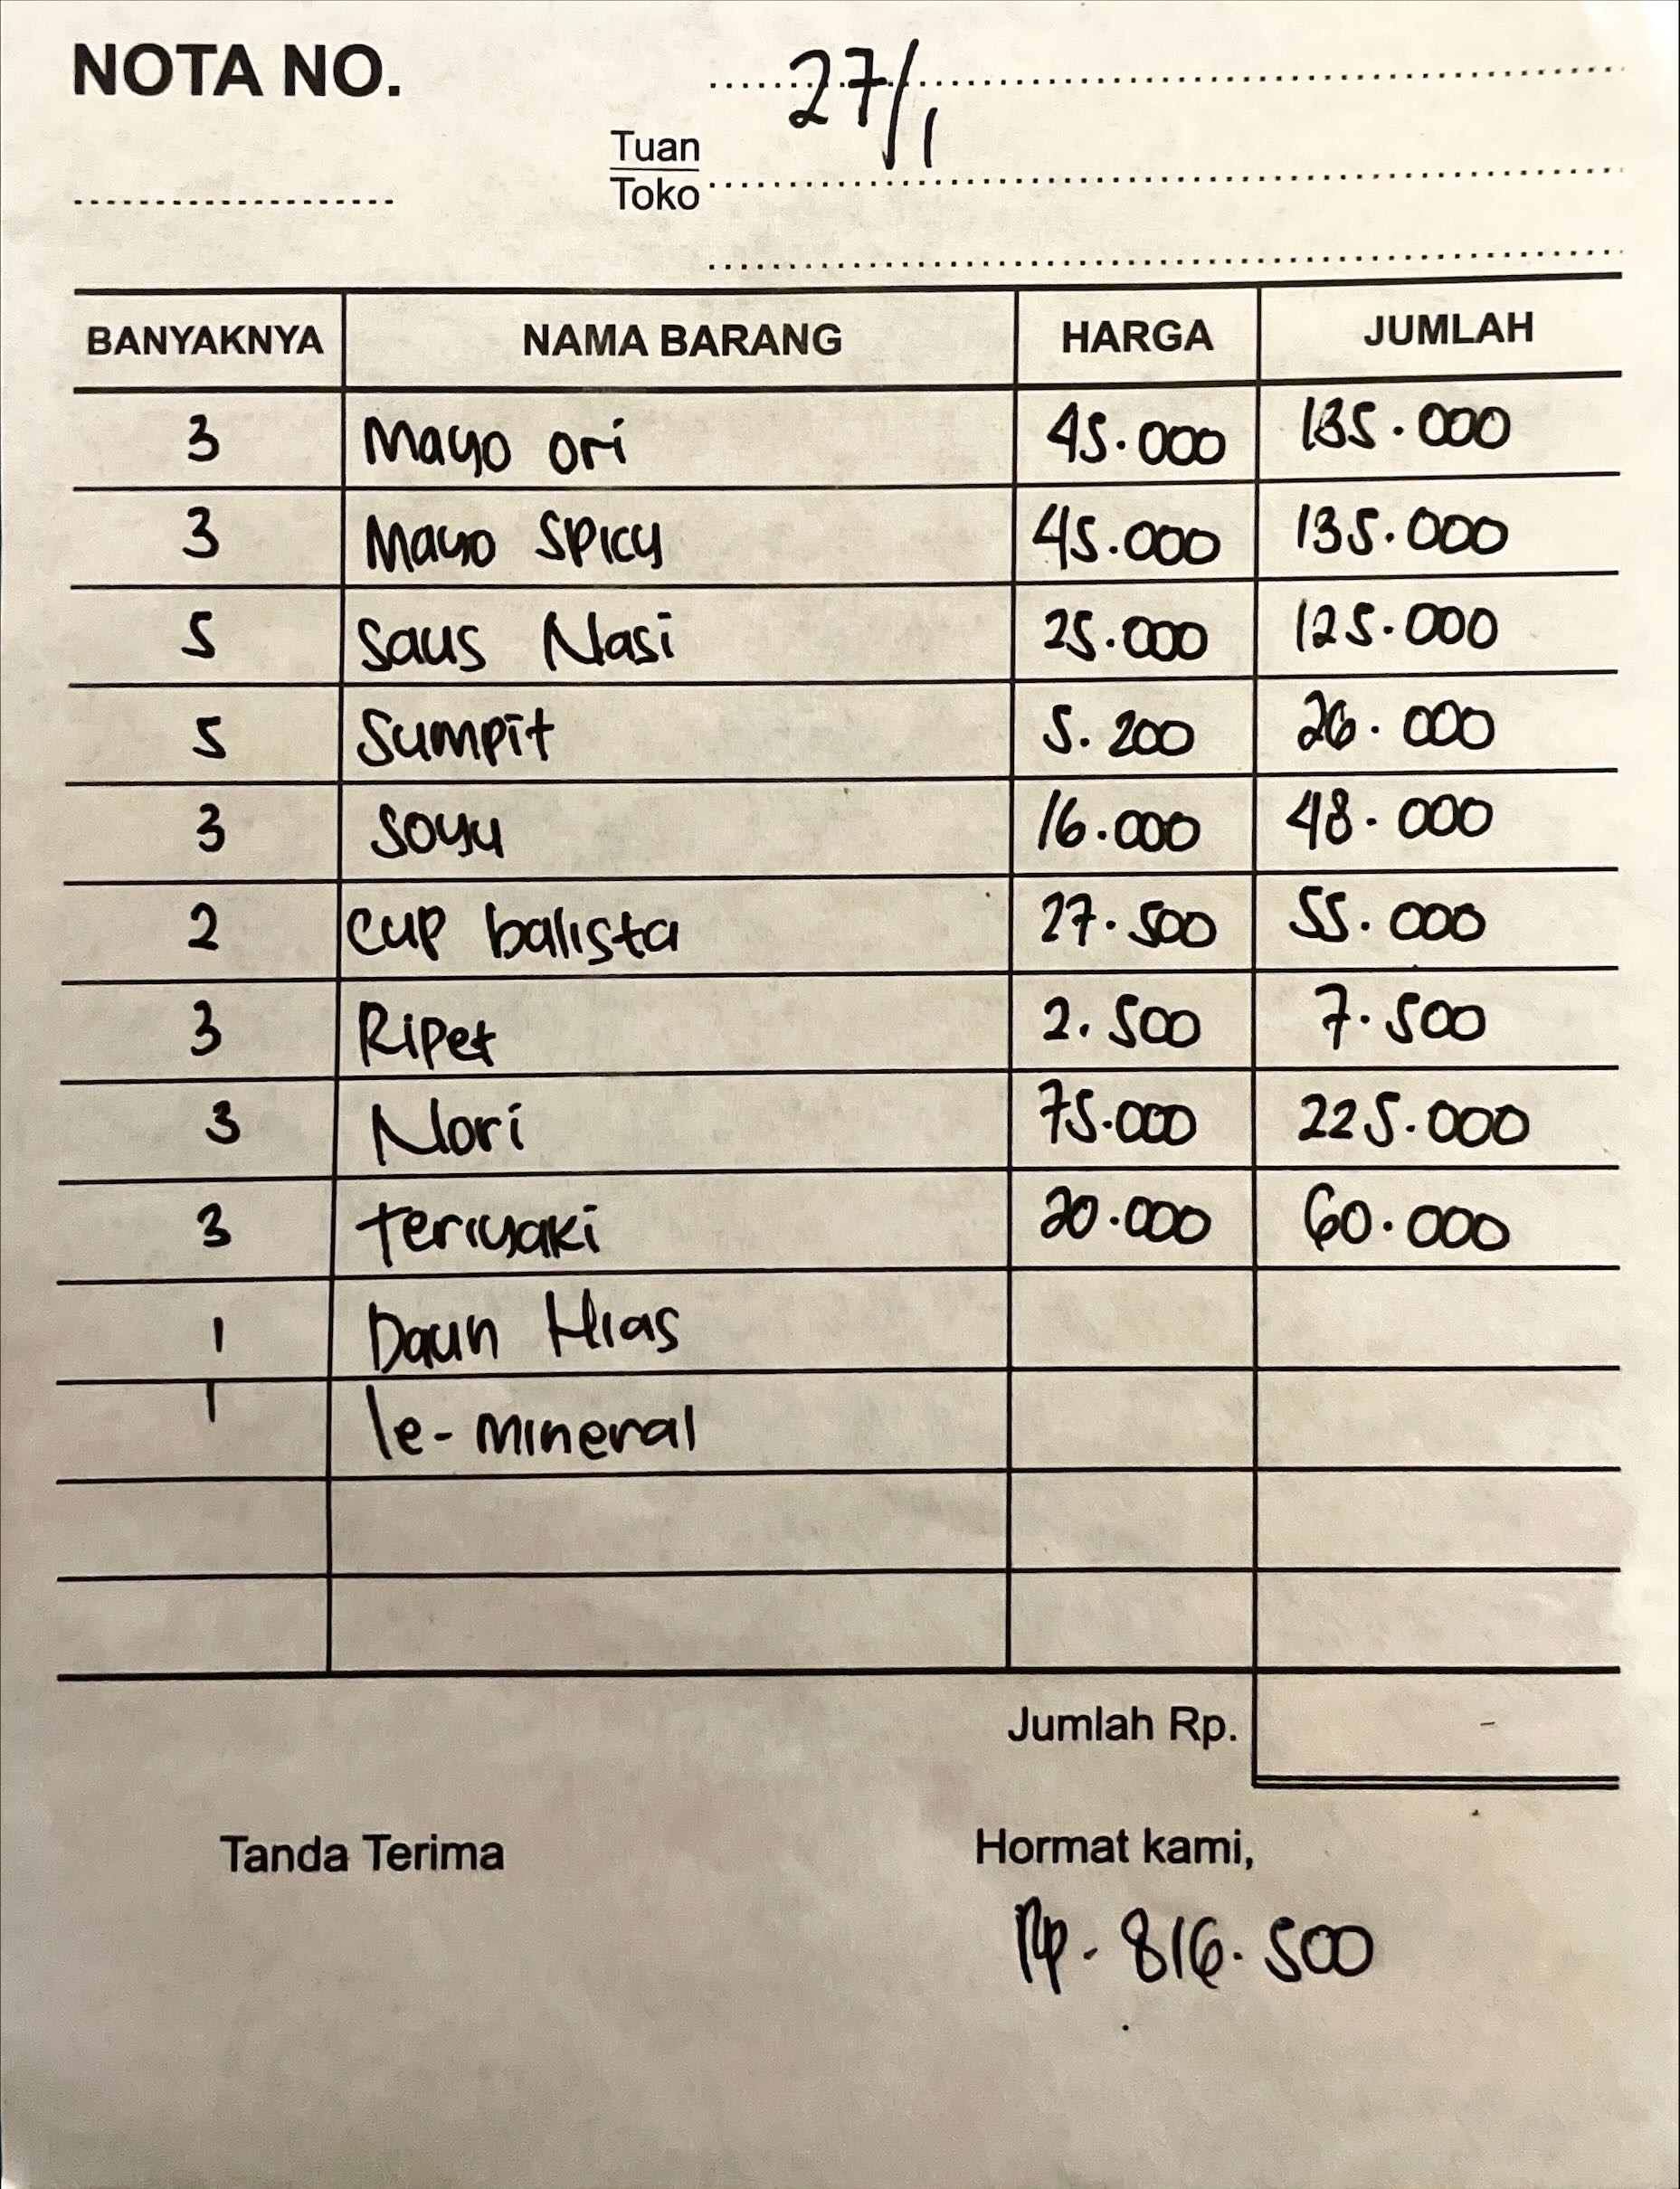 NOTA NO.
27/1
Tuan
Toko
BANYAKNYA NAMA BARANG HARGA JUMLAH
3 Mayo ori 45.000 135.000
3 Mayo Spicy 45.000 135.000
5 Saus Nasi 25.000 125.000
5 Sumpit 5.200 26.000
3 Soyu 16.000 48.000
2 Cup balista 27.500 55.000
3 Ripet 2.500 7.500
3 Nori 75.000 225.000
3 teriyaki 20.000 60.000
1 Daun Hias
1 le-mineral
Jumlah Rp. -
Tanda Terima Hormat kami,
Rp. 816.500